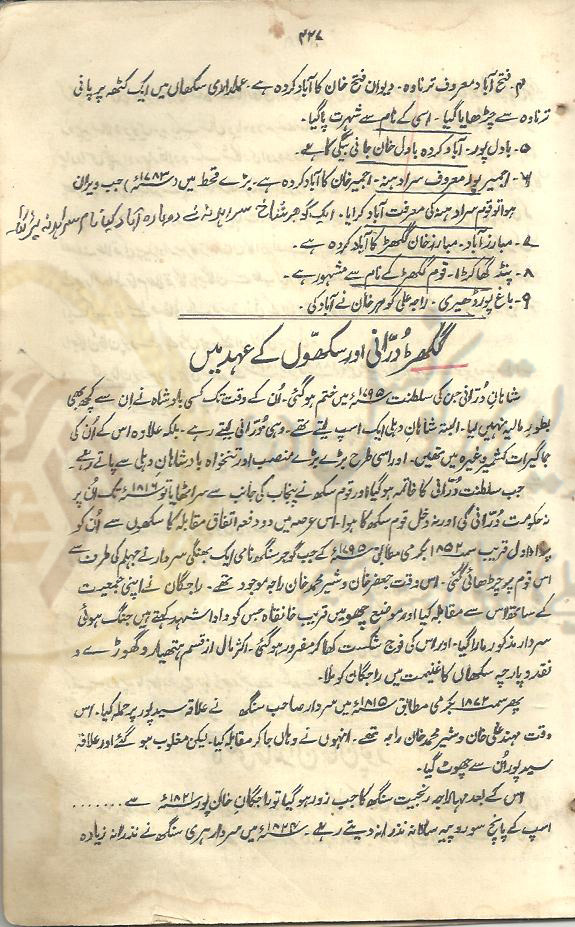 ۴۲۷
۴۔ فتح آباد معروف ترناوہ۔ دیوان فتح خان کا آباد کردہ ہے۔ عملداری سکھاں میں ایک کٹھہ پر پانی
ترناوہ سے چڑھایا گیا۔ اسی کے نام سے شہرت پا گیا۔
۵۔ باول پور۔ آباد کردہ باول خان جانی بیگی کا ہے۔
۶۔ اجمیر پور معروف سراد ہنہ۔ اجمیر خان کا آباد کردہ ہے۔ بڑے قحط میں (۱۷۸۳ء) جب ویران
ہوا تو قوم سراد ہنہ کی معرفت آباد کرایا۔ ایک گوجر شاخ سراہدنہ نے دوبارہ آباد کیا نام سراہدنہ
۷۔ مبارز آباد۔ مبارز خان گکھڑ کا آباد کردہ ہے۔
۸۔ پنڈ گھاکڑا۔ قوم گکھڑ کے نام سے مشہور ہے۔
۹۔ باغ پور ڈھیری۔ راجہ علی گوہر خان نے آباد کی۔
گکھڑ دُرّانی اور سکھّوں کے عہد میں
شاہانِ دُرّانی جن کی سلطنت ۱۷۹۵ء میں ختم ہو گئی۔ اُن کے وقت تک کسی بادشاہ نے اِن سے کچھ بھی
بطور مالیہ نہیں لیا۔ البتہ شاہان دہلی ایک اسپ لیتے تھے۔ وہی دُرّانی لیتے رہے۔ بلکہ علاوہ اس کے اُن کی
جاگیرات کشمیر وغیرہ میں تھیں۔ اور اسی طرح بڑے بڑے منصب اور تنخواہ بادشاہان دہلی سے پاتے رہے۔
جب سلطنت دُرّانی کا خاتمہ ہو گیا اور قوم سکھ نے پنجاب کی جانب سے سر اٹھایا تو ۱۸۱۶ء تک اُن پر
نہ حکومت دُرّانی کی اور نہ دخل قوم سکھ کا ہوا۔ اس عرصہ میں دو دفعہ اتفاق مقابلہ کا سکھوں سے اُن کو
پڑا۔ اول قریب سمہ ۱۸۵۲ بکرمی مطابق ۱۷۹۵ء کے جب گوجر سنگھ نامی ایک بھنگی سردار نے جہلم کی طرف سے
اس قوم پر چڑھائی کی۔ اس وقت جعفر خان و شیر محمد خان راجہ موجود تھے۔ راجگان نے اپنی جمعیت
کے ساتھ اس سے مقابلہ کیا اور موضع میں قریب خانقاہ جس کو دادا شہید کہتے ہیں جنگ ہوئی
سردار مذکور مارا گیا۔ اور اس کی فوج شکست کھا کر مفرور ہو گئی۔ اکثر مال از قسم ہتھیار و گھوڑے و
نقد و پارچہ سکھاں کا غنیمت میں راجگان کو ملا۔
پھر سمت ۱۸۷۲ بکرمی مطابق ۱۸۱۵ء میں سردار صاحب سنگھ نے علاقہ سید پور پر حملہ کیا۔ اس
وقت مہند علی خان و شیر محمد خان راجہ تھے۔ انہوں نے وہاں جا کر مقابلہ کیا۔ لیکن مغلوب ہو گئے اور علاقہ
سید پور اُن سے چھوٹ گیا۔
اس کے بعد مہاراجہ رنجیت سنگھ کا جب زور ہو گیا تو راجگان خان پور ۱۸۲۱ء سے ........
اسپ کے پانچ سو روپیہ سالانہ نذرانہ دیتے رہے۔ ۱۸۲۴ء میں سردار ہری سنگھ نے نذرانہ زیادہ